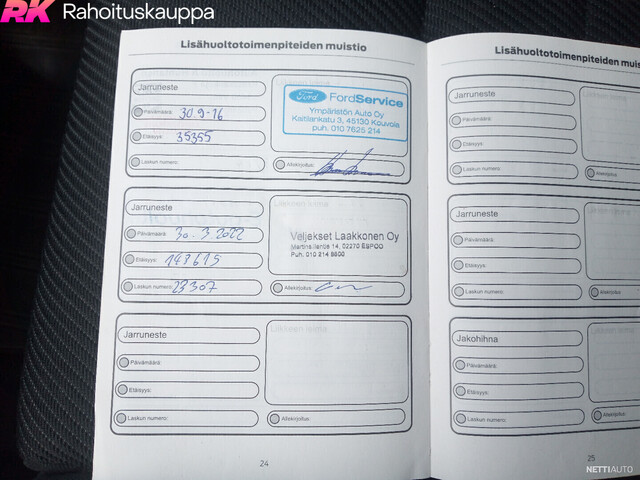 RK Rahoituskauppa
Lisähuoltotoimenpiteiden muistio
Jarruneste
Päivämäärä: 30 9-16
Etäisyys: 35355
Laskun numero:
Ford FordService
Ympäristön Auto Oy
Kaitilankatu 3, 45130 Kouvola
puh. 010 7625 214
Allekirjoitus:
Jarruneste
Päivämäärä: 30.3 2022
Etäisyys: 148615
Laskun numero: 23307
Veljekset Laakkonen Oy
Martinsillantie 14, 02270 ESPOO
Puh. 010 214 8800
Allekirjoitus:
Jarruneste
Päivämäärä:
Etäisyys:
Laskun numero:
Liikkeen leima
Allekirjoitus:
24
Lisähuoltotoimenpiteiden muis
Jarruneste
Päivämäärä:
Etäisyys:
Laskun numero:
Allekirjoitus:
Jarruneste
Päivämäärä:
Etäisyys:
Laskun numero:
Allekirjoitus:
Jakohihna
Päivämäärä:
Etäisyys:
Laskun numero:
Allekirjoitus:
25
NETTIAUTO